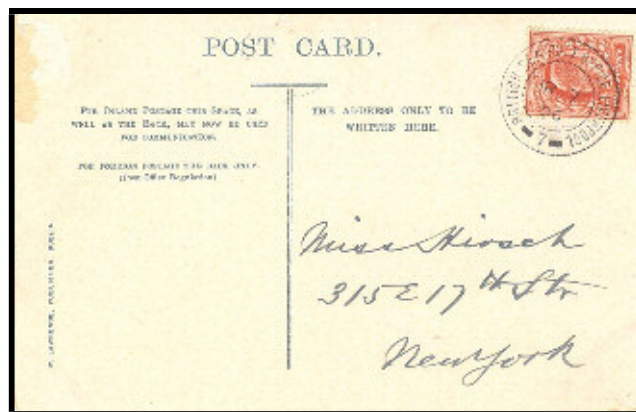 POST CARD.
FOR INLAND POSTAGE THIS SPACE, AS
WELL AS THE BACK, MAY NOW BE USED
FOR COMMUNICATION.
FOR FOREIGN POSTAGE THE BACK ONLY.
(Post Office Regulation)
THE ADDRESS ONLY TO BE
WRITTEN HERE.
Miss Hirsch
315 E 17th Str
New York
LAWRENCE, PUBLISHER, DUBLIN.
7